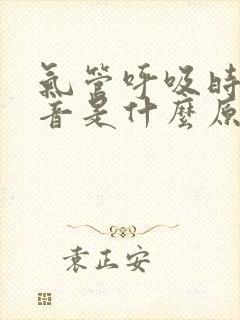 氣管呼吸時
音是什麼原
袁正安